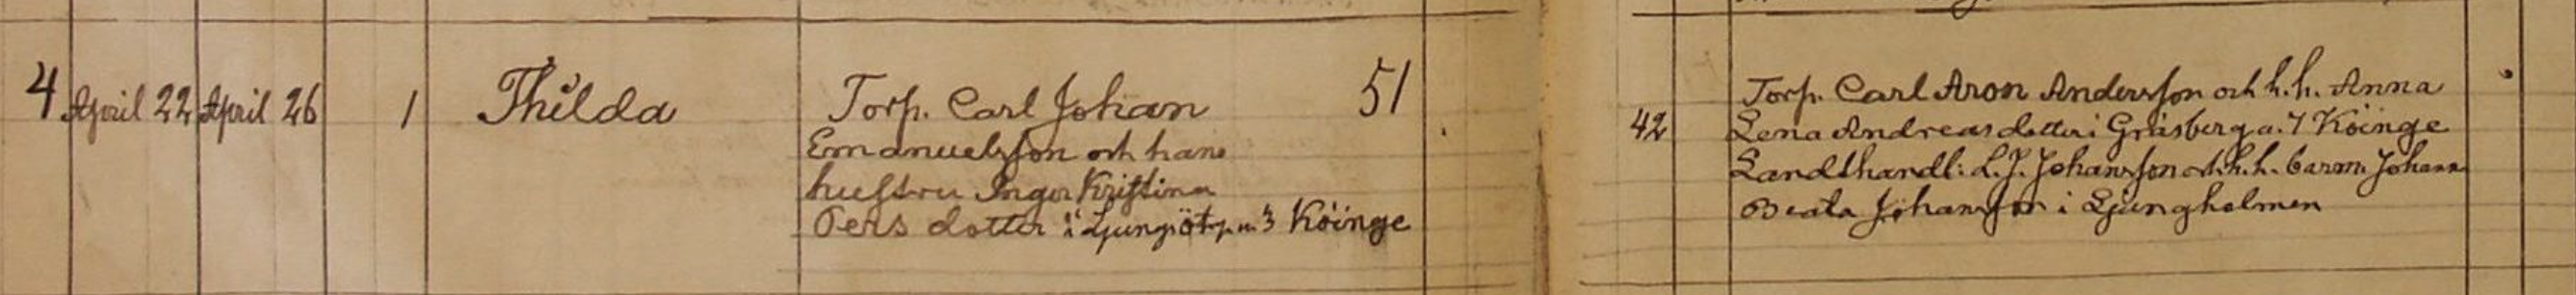 4 April 22 April 26 1 Thilda Torp. Carl Johan 51
Emanuelsson och hans
hustru Inger Kristina
Persdotter i u. 3 Köinge
42 Torp. Carl Aron Andersson och h.h. Anna
Lena Andreasdotter i Gräsberg u. 7 Köinge
Landthandl. L. J. Johansson o. h. h. Johanna
Beata Johansson i Ljungholmen